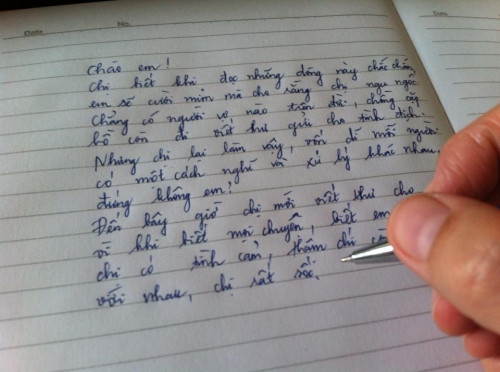 No.
Chào em!
Chị biết khi đọc những dòng này chắc chắn
em sẽ cười mỉm mà cho rằng chị ngu ngốc.
Chẳng có người vợ nào trên đời, chồng cặp
bồ còn đi viết thư gửi cho tình địch.
Nhưng chị lại làm vậy, vốn dĩ mỗi người
có một cách nghĩ và xử lý khác nhau,
đúng không em?
Đến bây giờ chị mới viết thư cho
vì khi biết mọi chuyện, biết em
chị có tình cảm, thậm chí
với nhau, chị rất sốc.